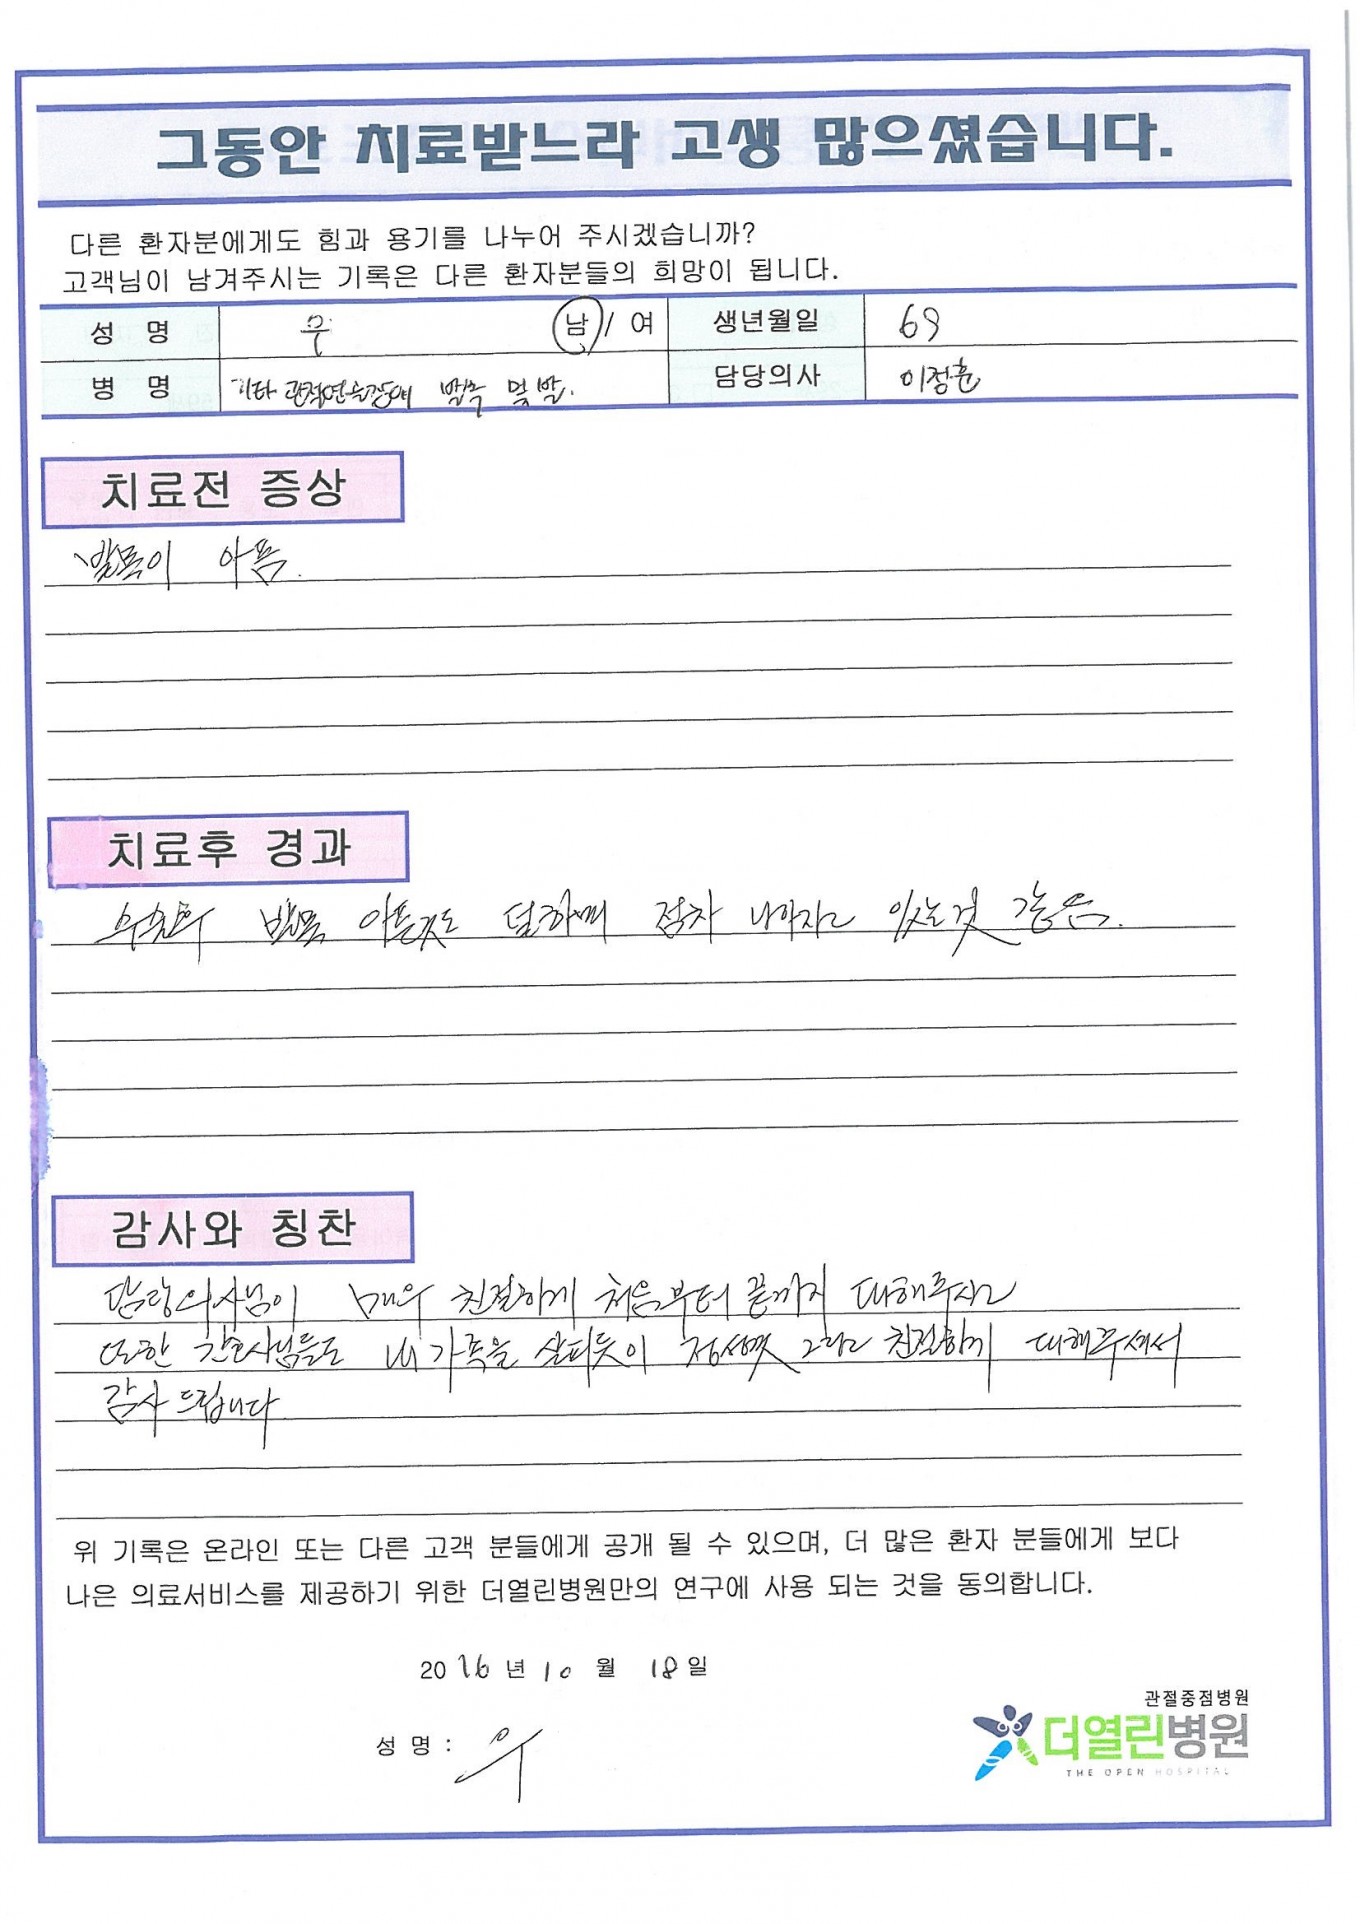 그동안 치료받느라 고생 많으셨습니다.
다른 환자분에게도 힘과 용기를 나누어 주시겠습니까?
고객님이 남겨주시는 기록은 다른 환자분들의 희망이 됩니다.
성 명 우 남 / 여 생년월일 69
병 명 기타 관절연골장애 발목 및 발. 담당의사 이정훈
치료전 증상
발목이 아픔.
치료후 경과
발목 아픈것도 덜하며 점차 나아지고 있는것 같음.
감사와 칭찬
담당의사님이 매우 친절하게 처음부터 끝까지 대해주시고
또한 간호사님들도 내 가족을 살피듯이 정성껏 그리고 친절하게 대해주셔서
감사 드립니다
위 기록은 온라인 또는 다른 고객 분들에게 공개 될 수 있으며, 더 많은 환자 분들에게 보다
나은 의료서비스를 제공하기 위한 더열린병원만의 연구에 사용 되는 것을 동의합니다.
2016 년 10 월 18 일
성 명 : 우
관절중점병원
더열린병원
THE OPEN HOSPITAL